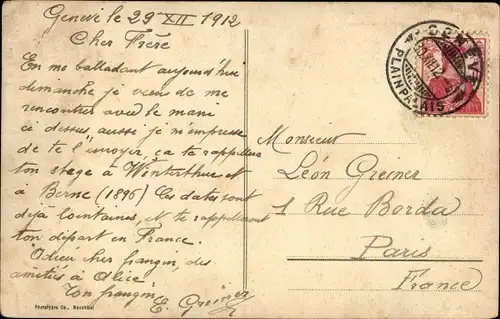 Genève le 29 XII 1912
Cher Frère
En me balladant aujourd'hui
dimanche je viens de me
rencontrer avec le mani
ci dessus, aussi je m'empresse
de te l'envoyer, ça te rappellera
ton stage à Winterthur et
à Berne (1896) Ces dates sont
déjà lointaines, et te rappelleront
ton départ en France.
Adieu cher frangin, des
amitiés à Alice
Ton frangin
E. Greiner
GENÈVE
PLAINPALAIS
Monsieur
Léon Greiner
1 Rue Borda
Paris
France
Phototypie Co., Neuchâtel